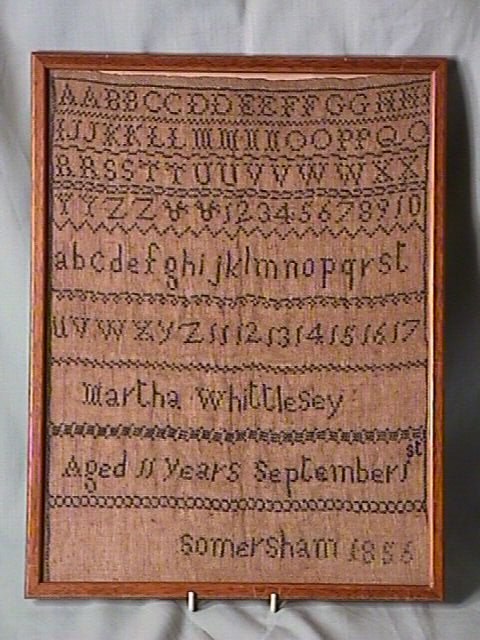 AABBCCDDEEFFGGHH
IIJJKKLLMMNNOOPPQQ
RRSSTTUUVVWWXX
YYZZ&&12345678910
abcdefghijklmnopqrst
uvwxyz11121314151617
Martha Whittlesey
Aged 11 years September 1st
Somersham 1856